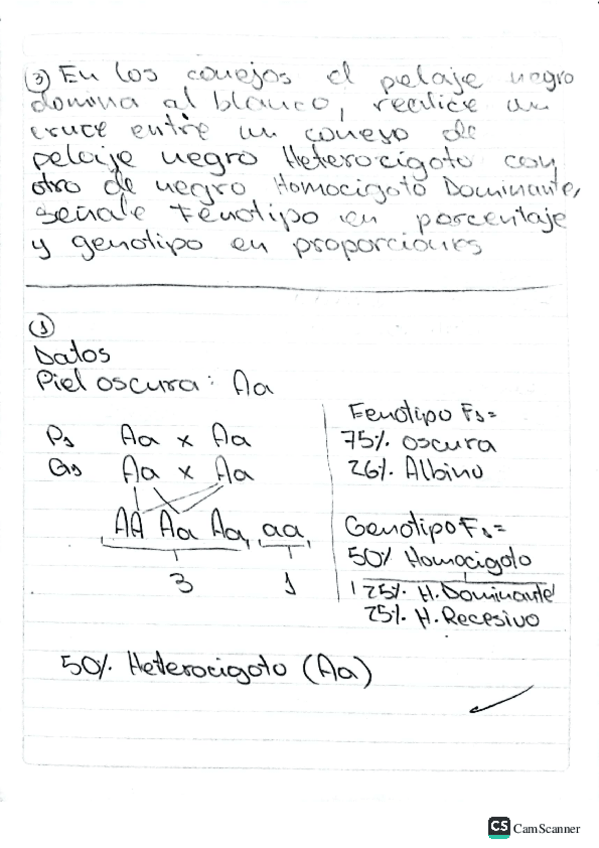 ③ En los conejos el pelaje negro
domina al blanco, realice un
cruce entre un conejo de
pelaje negro Heterocigoto con
otro de negro Homocigoto Dominante,
señale Fenotipo en porcentaje
y genotipo en proporciones
①
Datos
Piel oscura: Aa
P₁ Aa x Aa
G₁ Aa x Aa
AA Aa Aa, aa,
3 1
Fenotipo F₁=
75% oscura
26% Albino
Genotipo F₁=
50% Homocigoto
25% H. Dominante
25% H. Recesivo
50% Heterocigoto (Aa)
CS CamScanner